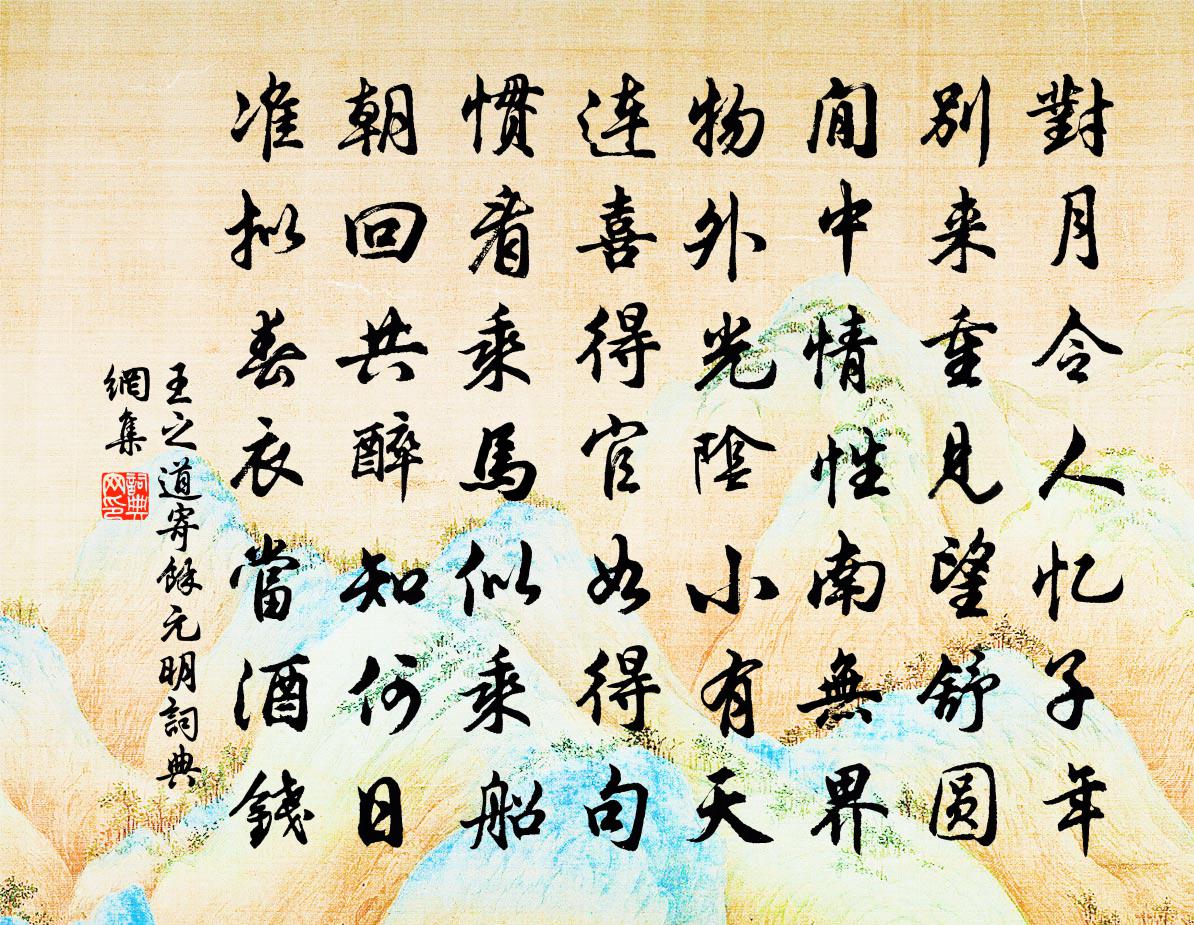 對月令人忆子年
别来重見望舒圆
閒中情性南無界
物外光陰小有天
連喜得官如得句
慣看乘馬似乘船
朝回共醉知何日
准拟春衣當酒錢
王之道寄餘元明詞典
網集
詞典
网印